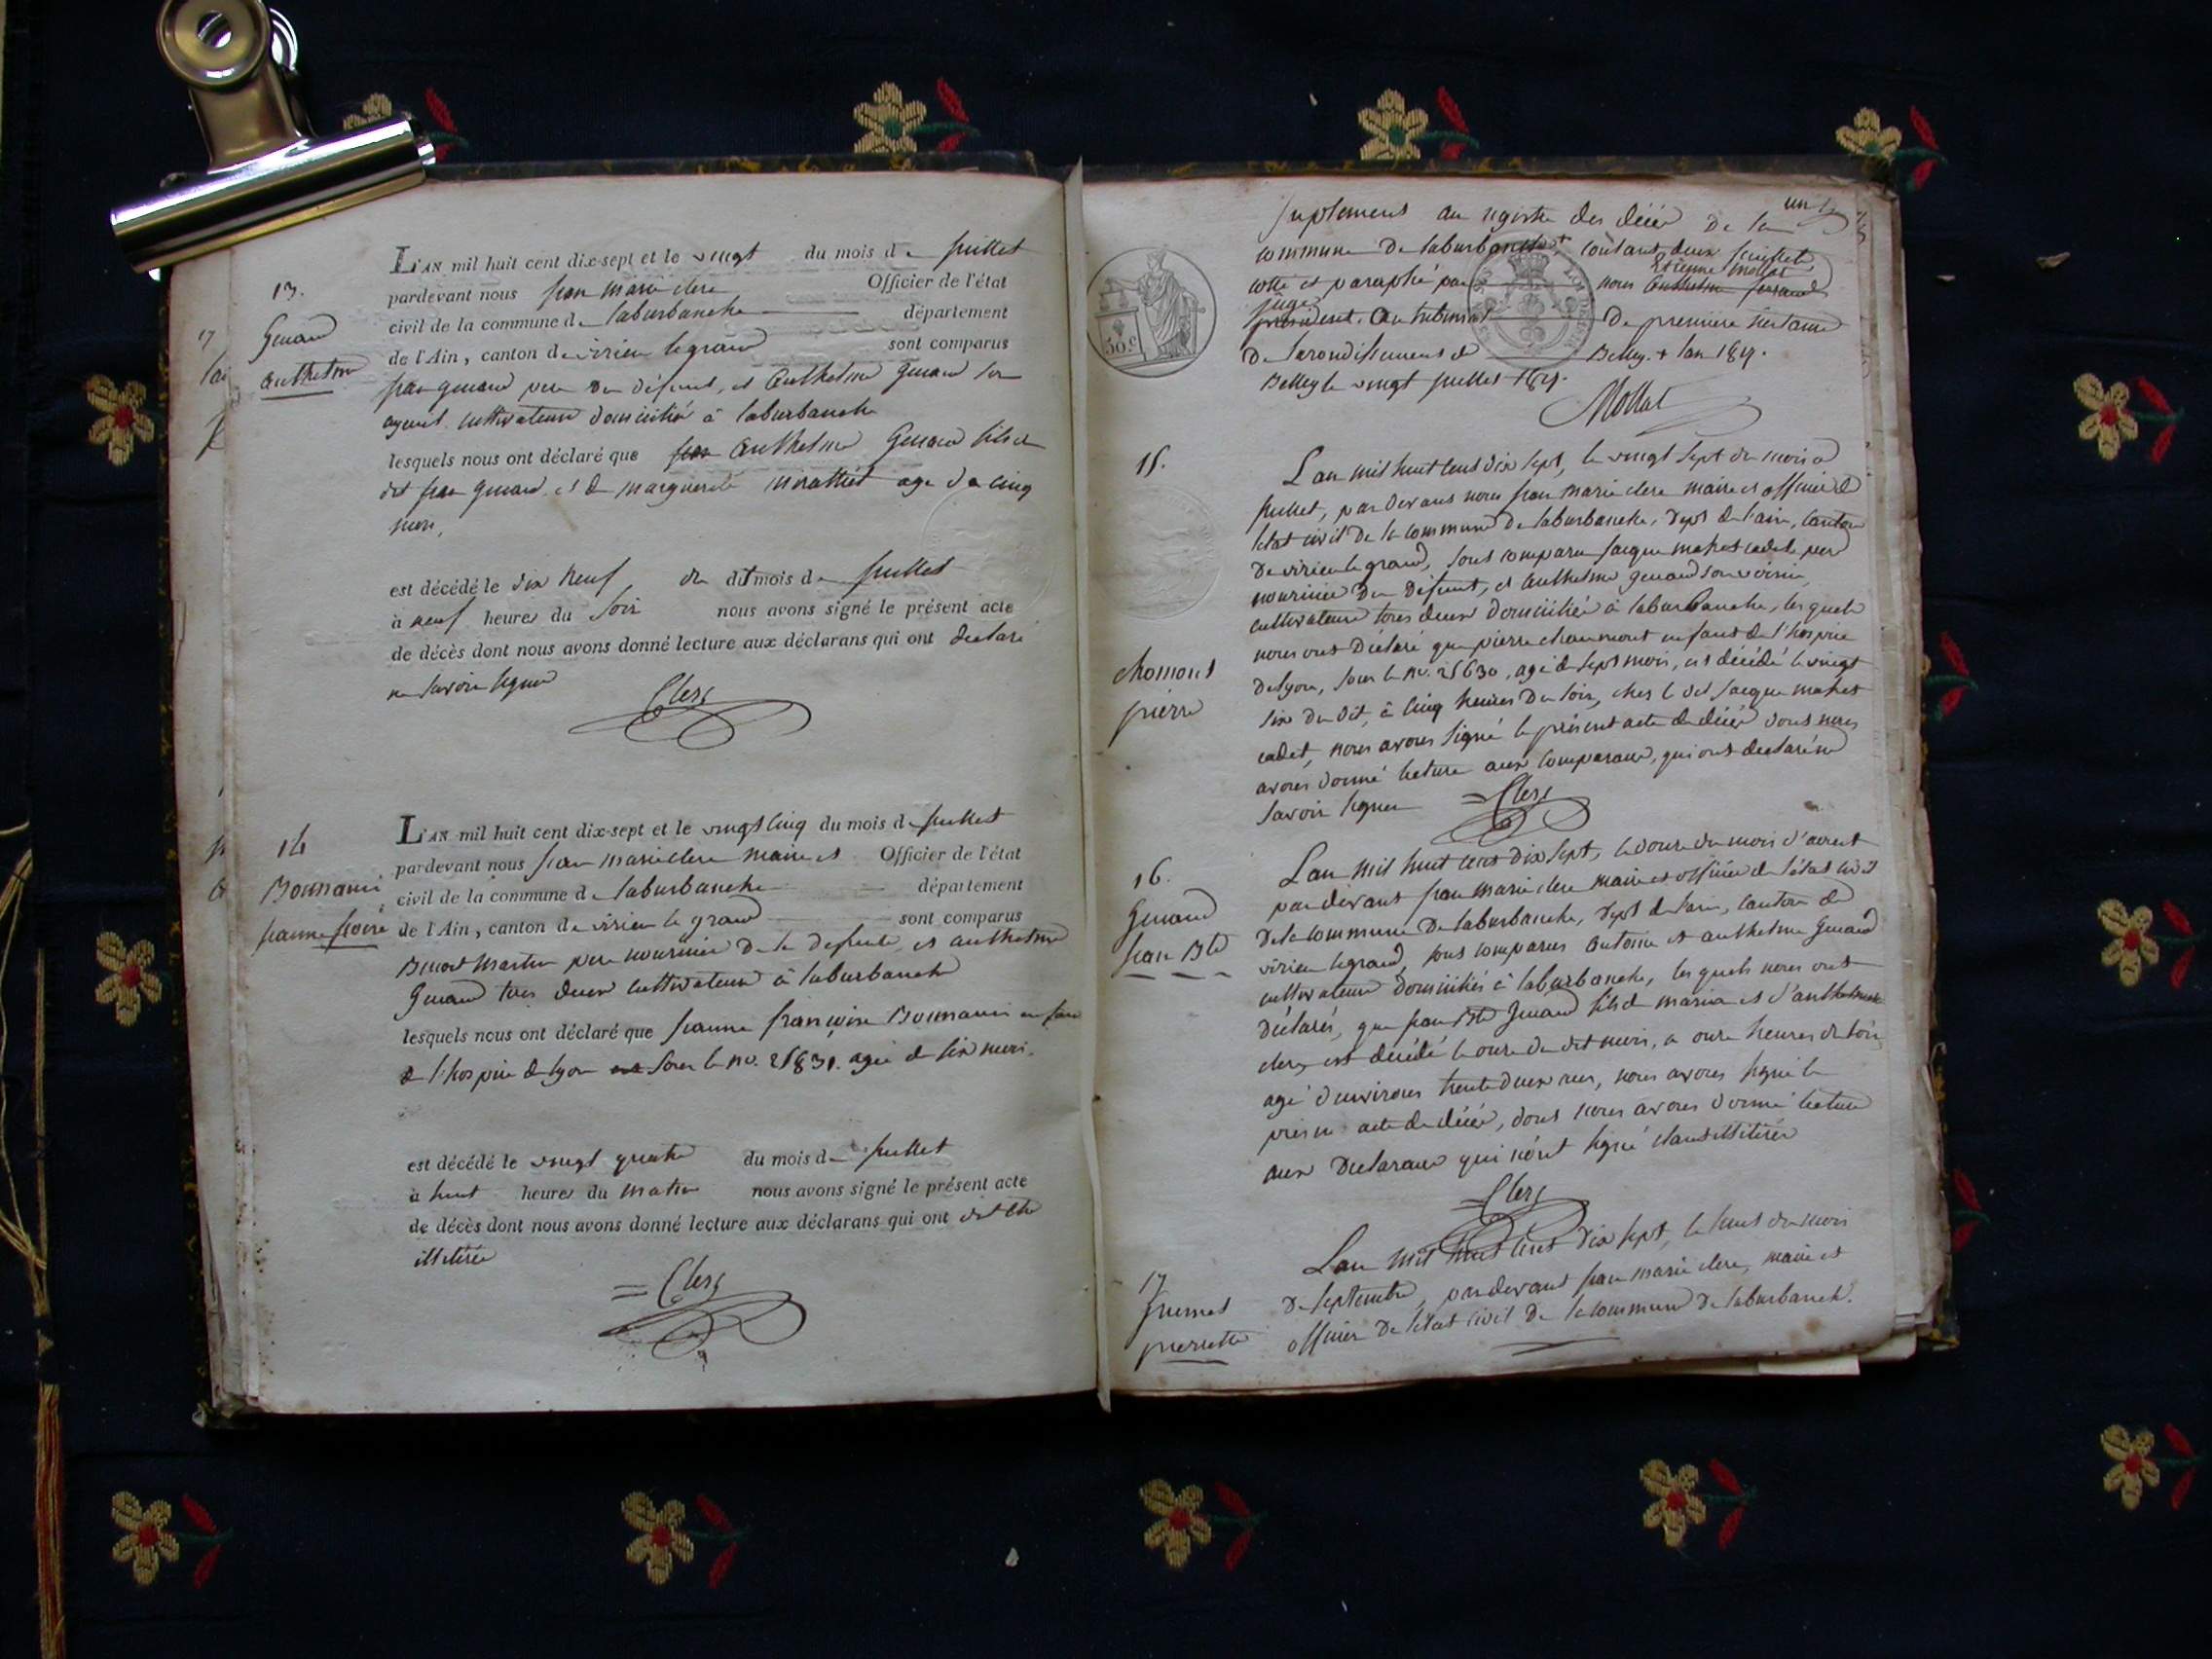 13.
Genand
Anthelme
L'AN mil huit cent dix-sept et le vingt du mois de juillet
pardevant nous jean marie clerc Officier de l'état
civil de la commune de laburbanche département
de l'Ain, canton de virieu le grand sont comparus
jean genand pere du défunt, et Anthelme genand son
ayeul cultivateurs domiciliés à laburbanche
lesquels nous ont déclaré que Anthelme Genand fils du
dit jean genand, et de marguerite agé de cinq
mois,
est décédé le dix neuf, du dit mois de juillet
à neuf heures du soir nous avons signé le présent acte
de décès dont nous avons donné lecture aux déclarans qui ont declaré
ne savoir signer
Clerc
14
Bonnami
jeanne
L'AN mil huit cent dix-sept et le vingt cinq du mois de juillet
pardevant nous jean marie clerc maire et Officier de l'état
civil de la commune de laburbanche département
de l'Ain, canton de virieu le grand sont comparus
Benoit Martin pere nouricier de la defunte, et anthelme
Genand tous deux cultivateurs à laburbanche
lesquels nous ont déclaré que jeanne françoise Bonnami enfant
de l'hospice de lyon sous le no. 25831. agée de six mois.
est décédé le vingt quatre du mois de juillet
à huit heures du matin nous avons signé le présent acte
de décès dont nous avons donné lecture aux déclarans qui ont dit être
illitérés
= Clerc
suplement au registre des décès de la
commune de laburbanche, contenant deux feuillets
cotté et paraphé par nous Etienne Mollat
juge au tribunal de premiere instance
de l'arondissement de Belley. + l'an 1817.
Belley le vingt juillet 1817.
Mollat
50.c
15.
chomont
pierre
L'an mil huit cent dix sept, le vingt sept du mois de
juillet, par devant nous jean marie clerc maire et officier de
letat civil de la commune de laburbanche, dept de l'ain, canton
de virieu le grand, sont comparu jacque mahet cadet pere
nouricier du défunt, et anthelme genand son voisin,
cultivateurs tous deux domiciliés à laburbanche, lesquels
nous ont déclaré que pierre chaumont enfant de l'hospice
de lyon, sous le no. 25630, agé de sept mois, est décédé le vingt
six du dit, à cinq heures du soir, chez le dit jacque mahet
cadet, nous avons signé le présent acte de décès dont nous
avons donné lecture aux comparans, qui ont declaré ne
savoir signer
= Clerc
16.
Genand
jean Bte
L'an mil huit cent dix sept, le douze du mois d'aoust
par devant jean marie clerc maire et officier de l'état civil
de la commune de laburbanche, dept de l'ain, canton de
virieu legrand, sont comparus antoine et anthelme Genand
cultivateurs domiciliés à laburbanche, lesquels nous ont
déclarés, que jean Bte Genand fils de marin et d'anthelmette
clerc, est décédé le onze du dit mois, a onze heures du soir,
agé d'environs trente deux ans, nous avons signé le
présent acte de décès, dont nous avons donné lecture
aux declarans qui n'ont signé etant illitérés
= Clerc
17
pierrette
L'an mil huit cent dix sept, le huit du mois
de septembre, par devant jean marie clerc, maire et
officier de l'état civil de la commune de laburbanche.